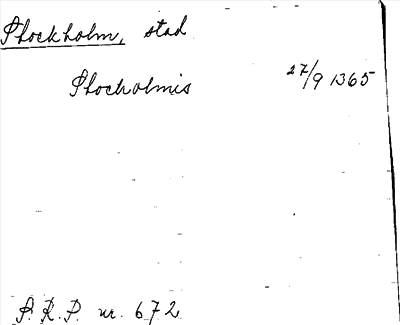 Stockholm, stad
Stocholmis 27/9 1365
S. R. P. nr. 672